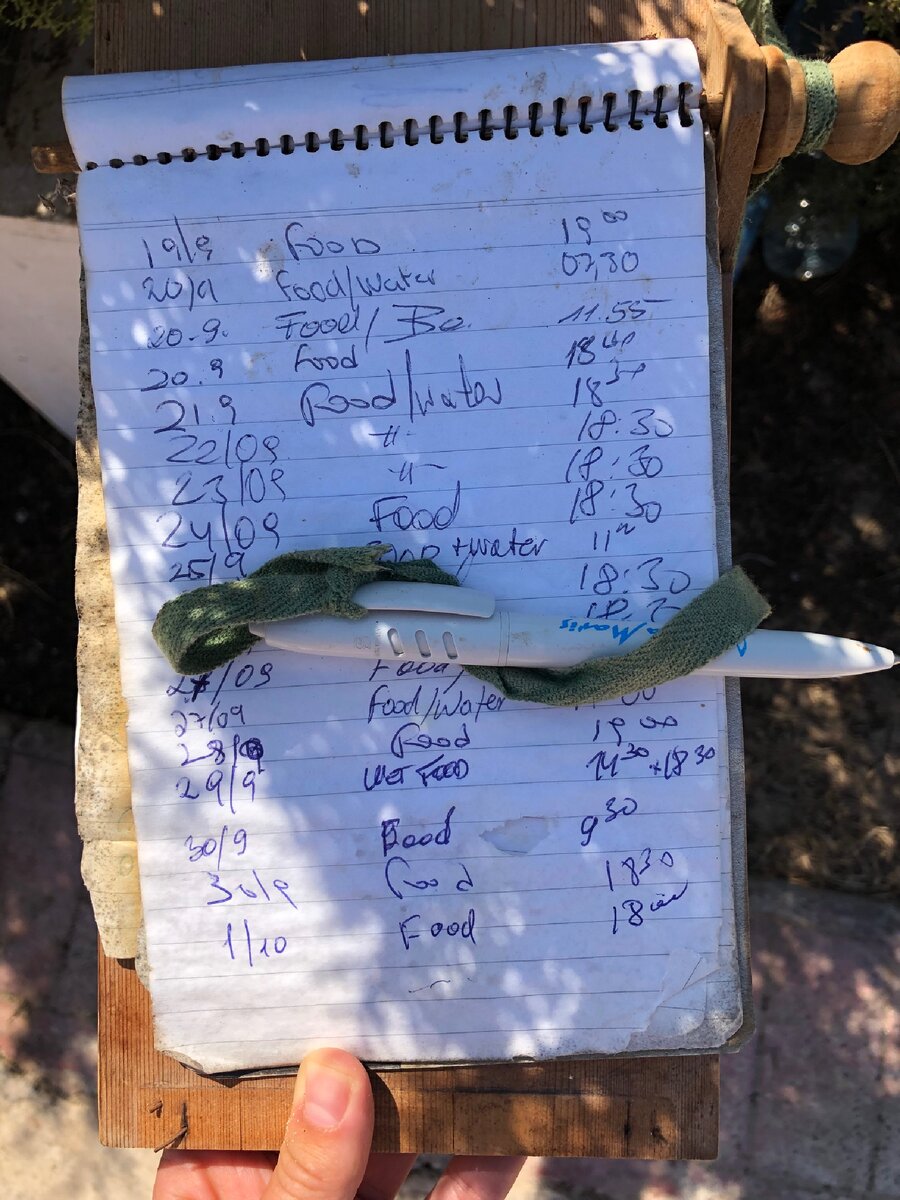 19/9 Food 19 00
20/9 Food/water 07,30
20.9. Food/ 11.55
20.9 Food 18 00
21.9 Food/water 18 30
22/09 -"- 18:30
23/09 -"- 18:30
24/09 Food 18:30
25/9 +water 11
18:30
/09 Food/
27/09 Food/Water
28/9 Food 19 00
29/9 WET FOOD 14 30 +18 30
30/9 Food 9 30
30/9 Food 18 30
1/10 Food 18